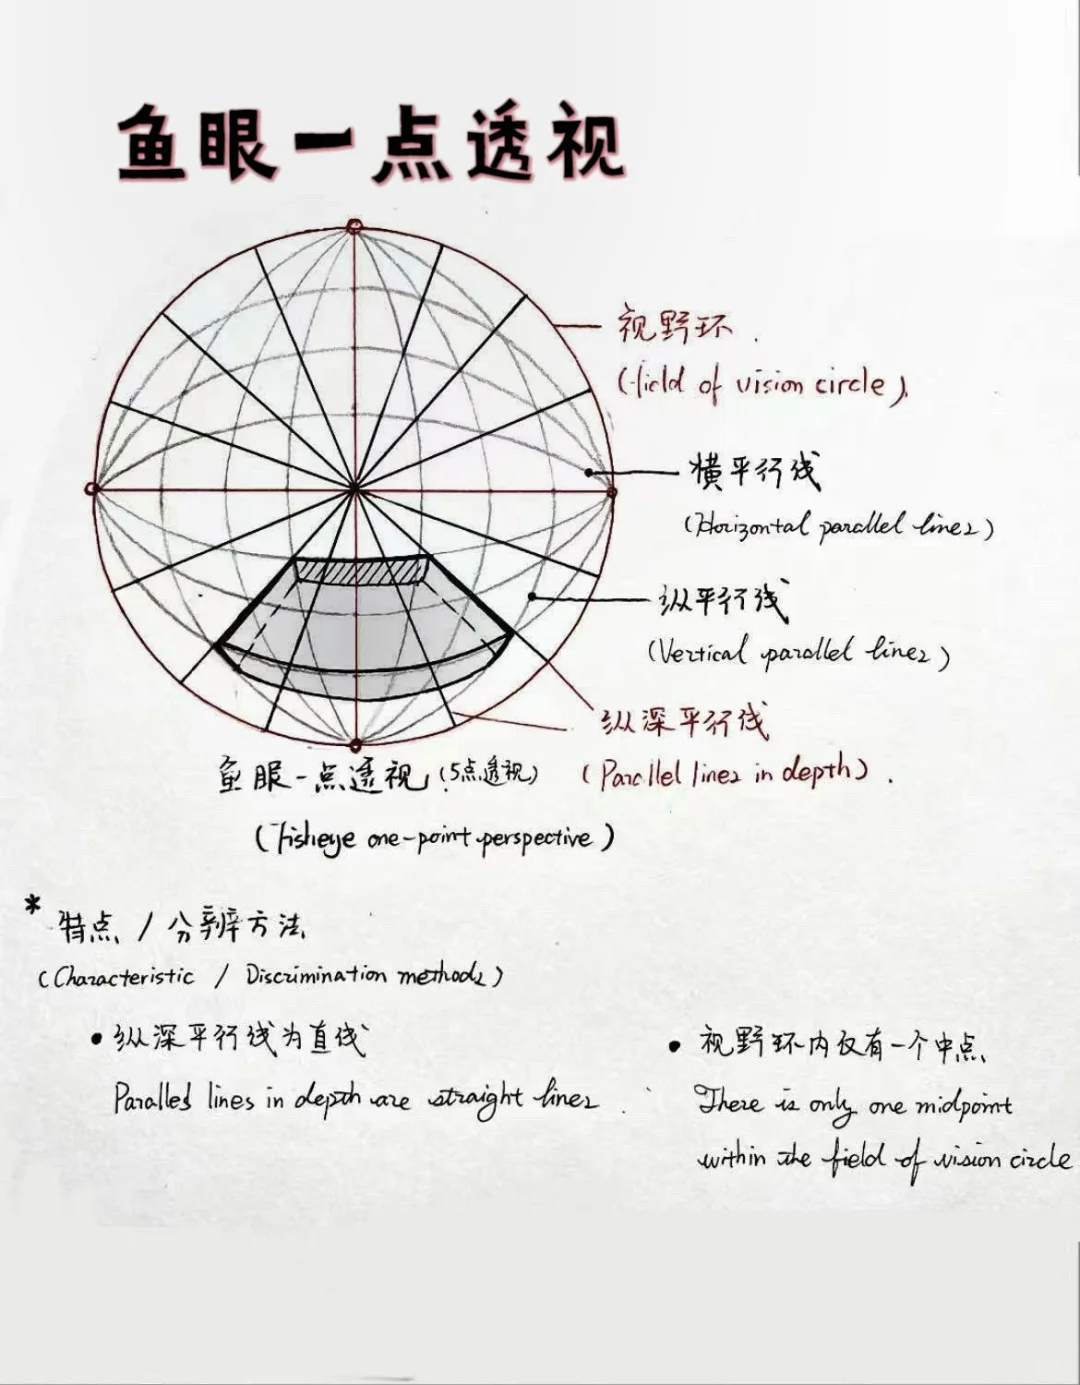 鱼眼一点透视
视野环.
(field of vision circle).
横平行线
(Horizontal parallel lines)
纵平行线
(Vertical parallel lines)
纵深平行线
(Parallel lines in depth).
鱼眼一点透视(5点透视)
(Fisheye one-point perspective)
* 特点/分辨方法
(Characteristic / Discrimination methods)
• 纵深平行线为直线
Parallel lines in depth are straight lines.
• 视野环内仅有一个中点
There is only one midpoint
within the field of vision circle